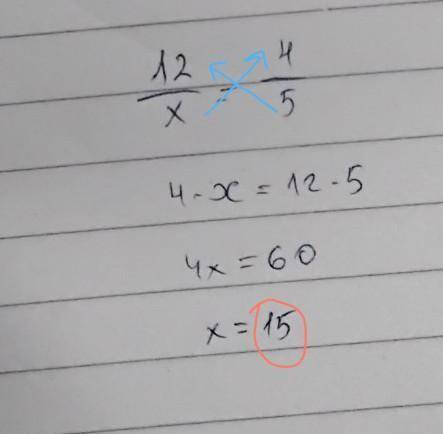 12/x = 4/5
4 · x = 12 · 5
4x = 60
x = 15